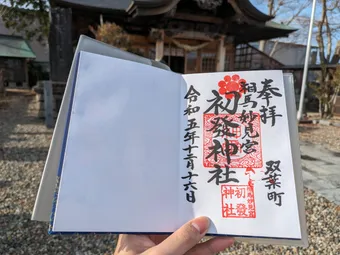 奉拝
双葉町
相馬妙見宮
初發神社
初發
神社
令和五年十二月十六日